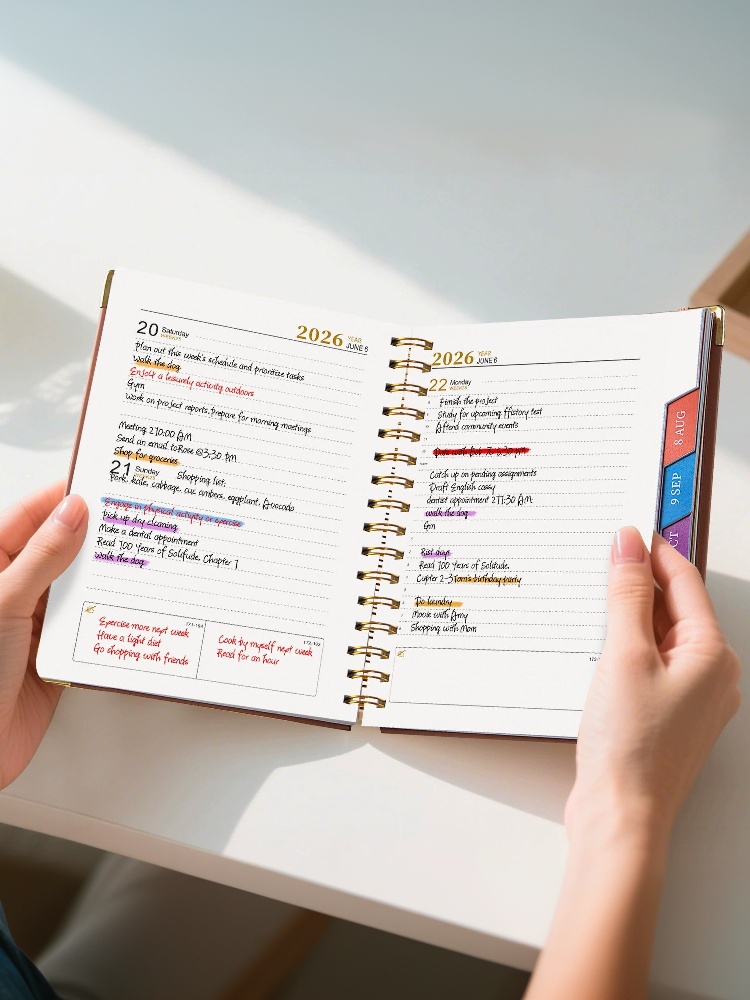 20 Saturday
2026 YEAR
JUNE 6
Plan out this week's schedule and prioritize tasks
Walk the dog
Enjoy a leisurely activity outdoors
Gym
Work on project reports, prepare for morning meetings
Meeting 210:00 AM
Send an email toRose @3:30 PM
Shop for groceries
21 Sunday
Shopping list:
Pork, kale, cabbage, cuc umbers, eggplant, Avocado
Engage in physical activity or exercise
Pick up dry cleaning
Make a dental appointment
Read 100 Years of Solitude, Chapter 1
Walk the dog
Exercise more next week
Have a light diet
Go shopping with friends
Cook by myself next week
Read for an hour
2026 YEAR
JUNE 6
22 Monday
Finish the project
Study for upcoming History test
Attend community events
Catch up on pending assignments
Draft English essay
dentist appointment 211:30 AM
walk the dog
Gm
Rest days
Read 100 Years of Solitude,
Cupter 2-3 Tom's birthday party
Do laundry
Movie with Amy
Shopping with Mom
8 AUG
9 SEP
CT